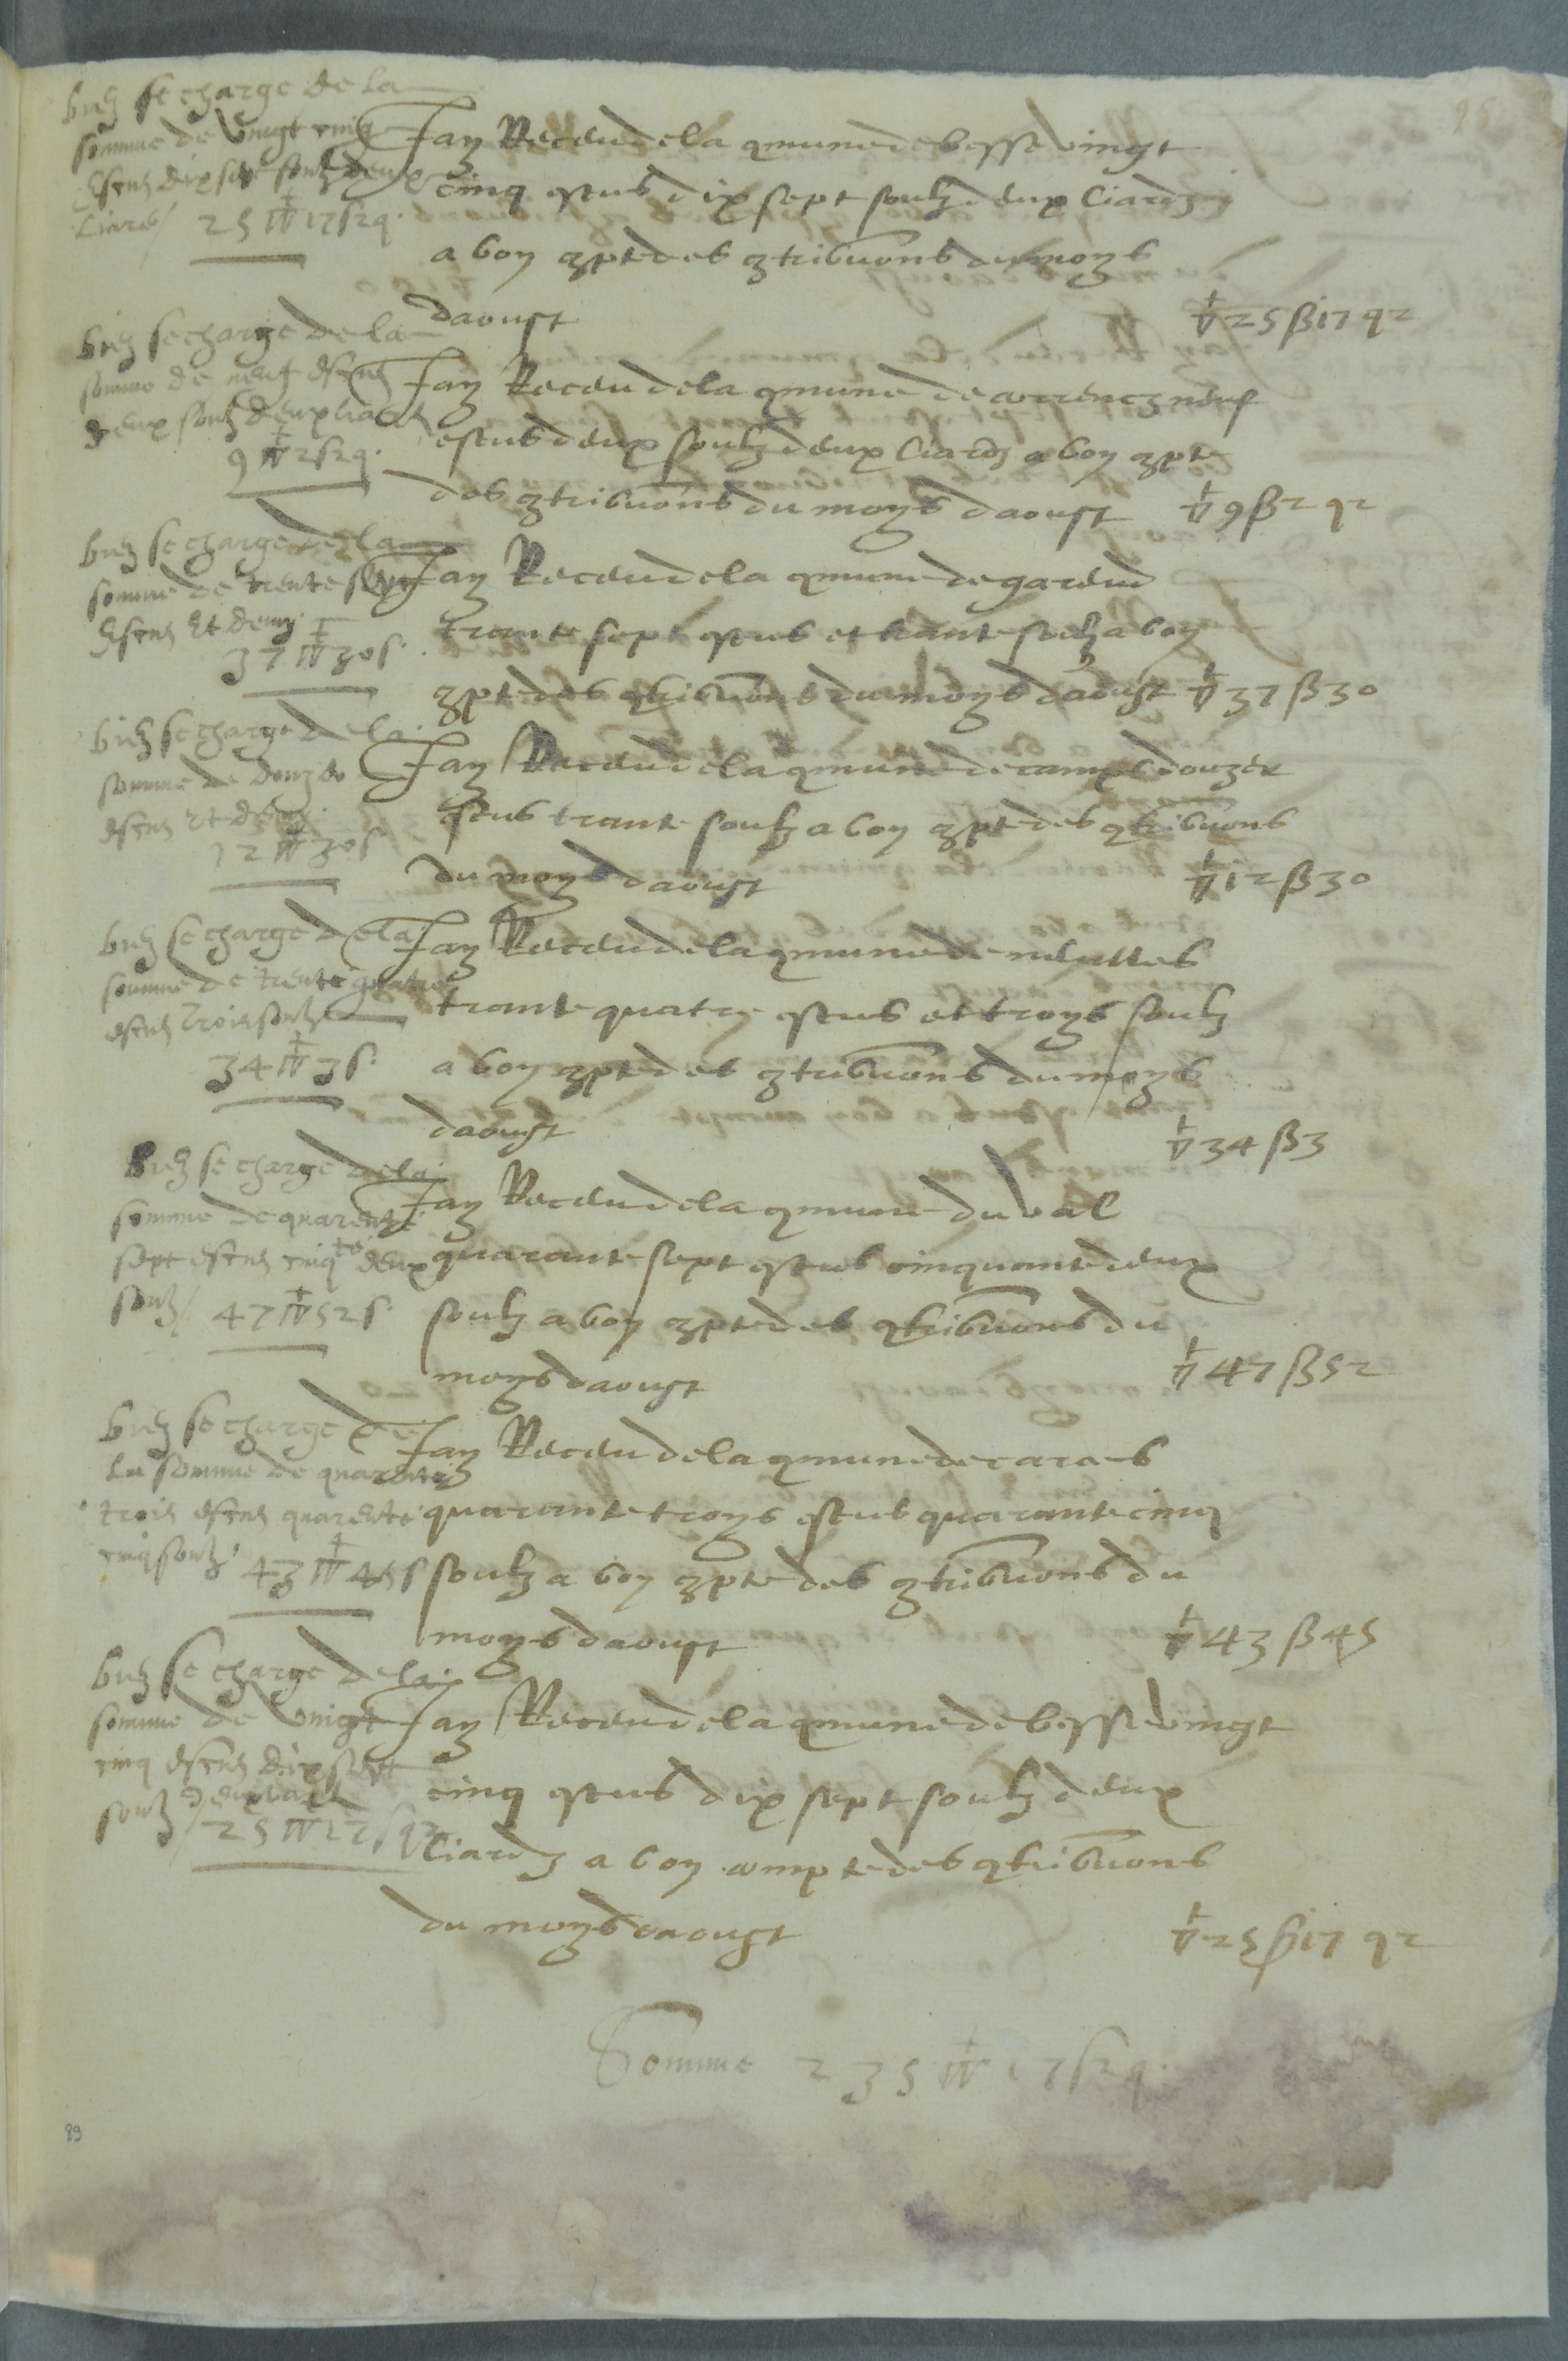 bien se charge de la
somme de vingt cinq
escus dix sept soulz deux
liards 25 ▽ 17 s 2 q.
Jay Receu de la qmune de besse vingt
cinq escus dix sept soulz deux liardz
a bon 9pte des 9tribuons du moys
daoust ▽ 25 ß 17 q 2
bien se charge de la
somme de neuf escus
deux soulz deux liards
9 ▽ 2 s 2 q.
Jay Receu de la qmune de correncz neuf
escus deux soulz deux liardz a bon 9pte
des 9tribuons du moys daoust ▽ 9 ß 2 q 2
bien se charge de la
somme de trente sept
escus et demy
37 ▽ 30 s.
Jay Receu de la qmune de gareud
trante sept escus et trante soulz a bon
9pte des qtribuons du moys daoust ▽ 37 ß 30
bien se charge de la
somme de douze
escus et demy
12 ▽ 30 s
Jay Receu de la qmune de camps douze
escus trante soulz a bon 9pte des qtribuons
du moys daoust ▽ 12 ß 30
bien se charge de la
somme de trente quatre
escus trois soulz
34 ▽ 3 s.
Jay Receu de la qmune de neulles
trante quatre escus et troys soulz
a bon 9pte des 9tribuons du moys
daoust ▽ 34 ß 3
bien se charge de la
somme de quarente
sept escus cinqte deux
soulz / 47 ▽ 52 s.
Jay Receu de la qmune du val
quarante sept escus cinquante deux
soulz a bon 9pte des qtribuons du
moys daoust ▽ 47 ß 52
bien se charge de
la somme de quarente
trois escus quarente
cinq soulz 43 ▽ 45 s
Jay Receu de la qmune de caraes
quarante troys escus quarante cinq
soulz a bon 9pte des 9tribuons du
moys daoust ▽ 43 ß 45
bien se charge de la
somme de vingt
cinq escus dix sept
soulz deux liards
25 ▽ 17 s q 2
Jay Receu de la qmune de besse vingt
cinq escus dix sept soulz deux
liardz a bon compte des qtribuons
du moys daoust ▽ 25 ß 17 q 2
Somme 235 ▽ 17 s 2 q.
89